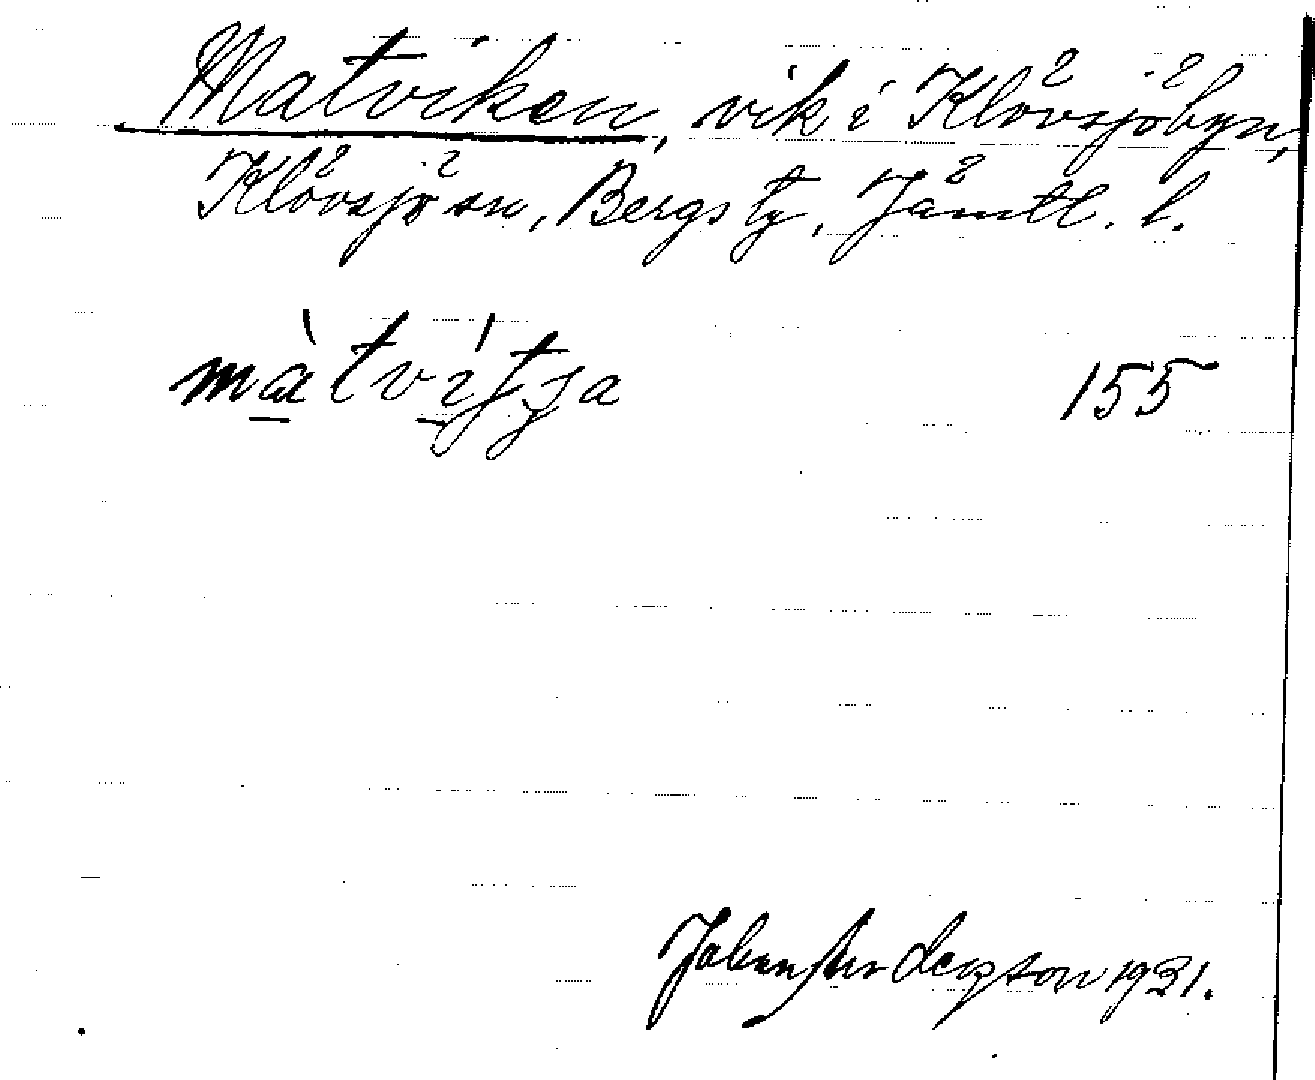 Matviken, vik i Klövsjöbyn,
Klövsjö sn, Bergs tg, Jämtl. l.
màtvítja 155
Johan Anderzson 1931.